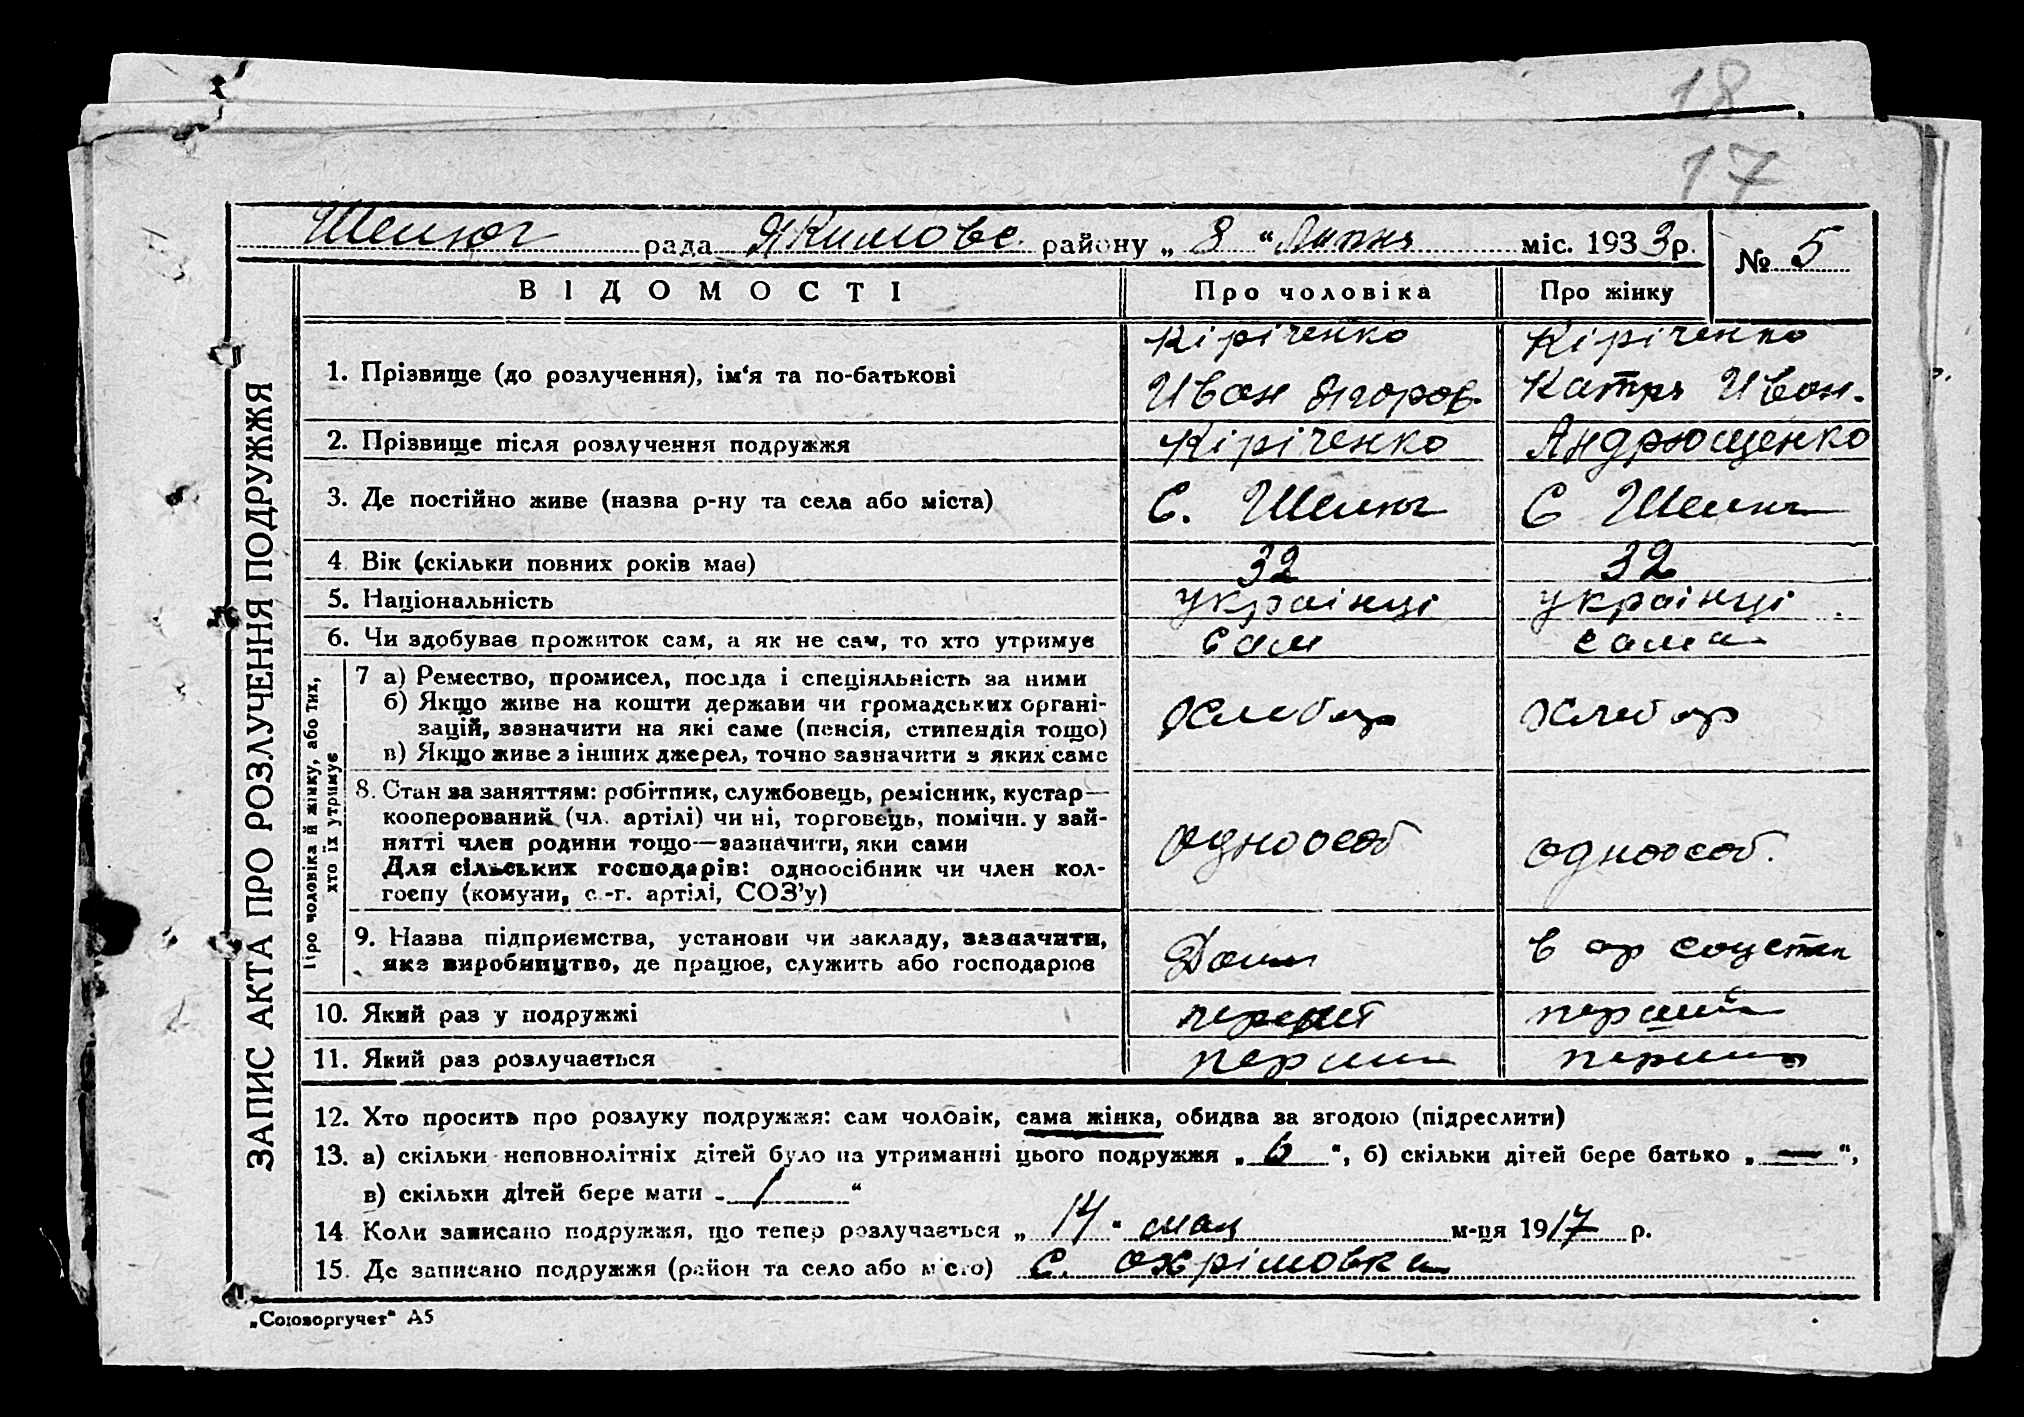 18
17
Шелюг рада Якимовс. району „ 8 “ Липня міс. 1933 р. № 5
ЗАПИС АКТА ПРО РОЗЛУЧЕННЯ ПОДРУЖЖЯ
ВІДОМОСТІ Про чоловіка Про жінку
1. Прізвище (до розлучення), ім‘я та по-батькові
Кіріченко Кіріченко
Иван Ягоров. Катря Ивон.
2. Прізвище після розлучення подружжя Кіріченко Андрющенко
3. Де постійно живе (назва р-ну та села або міста) С. Шелюг С Шелюг
4. Вік (скільки повних років має) 32 32
5. Національність украінці украінці
6. Чи здобуває прожиток сам, а як не сам, то хто утримує сам сама
Про чоловіка й жінку, або тих,
хто їх утримує
7 а) Ремество, промисел, посада і спеціяльність за ними
б) Якщо живе на кошти держави чи громадських органі-
зацій, зазначити на які саме (пенсія, стипендія тощо)
в) Якщо живе з інших джерел, точно зазначити з яких саме
Хлебор Хлебор
8. Стан за заняттям: робітник, службовець, ремісник, кустар—
кооперований (чл. артілі) чи ні, торговець, помічн. у зай-
нятті член родини тощо—зазначити, яки сами
Для сільських господарів: одноосібник чи член кол-
госпу (комуни, с.-г. артілі, СОЗ’у)
одноосоо одноосоо.
9. Назва підприємства, установи чи закладу, зазначити,
яке виробництво, де працює, служить або господарює
Дома в ар
10. Який раз у подружжі перший перший
11. Який раз розлучається перший перший
12. Хто просить про розлуку подружжя: сам чоловік, сама жінка, обидва за згодою (підреслити)
13. а) скільки неповнолітніх дітей було на утриманні цього подружжя „ “, б) скільки дітей бере батько „ — “,
в) скільки дітей бере мати „ 1 “
14 Коли записано подружжя, що тепер розлучається „ 14 “ мая м-ця 1917 р.
15. Де записано подружжя (район та село або місто) С. Охрімовка
„Союзоргучет“ А5